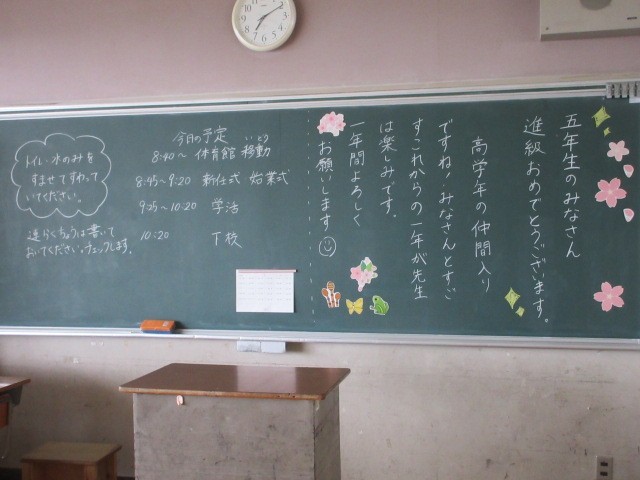 五年生のみなさん
進級おめでとうございます。
高学年の仲間入り
ですね!みなさんとすご
すこれからの一年が先生
は楽しみです。
一年間よろしく
お願いします
今日の予定
いどう
8:40～ 体育館 移動
8:45～9:20 新任式 始業式
9:25～10:20 学活
10:20 下校
トイレ・水のみを
すませてすわって
いてください。
連らくちょうは書いて
おいてください。チェックします。